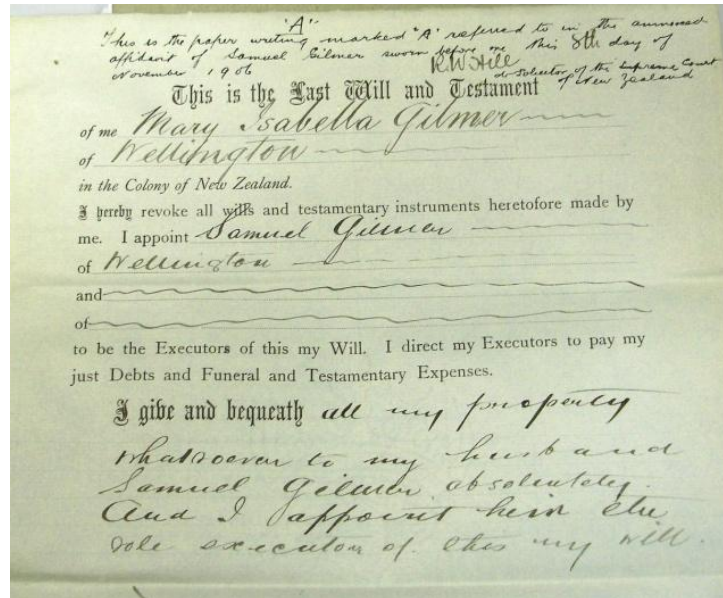 "A"
This is the paper writing marked "A" referred to in the annexed
affidavit of Samuel Gilmer sworn before me this 8th day of
November 1906
R W Hill
a Solicitor of the Supreme Court
of New Zealand
This is the Last Will and Testament
of me Mary Isabella Gilmer
of Wellington
in the Colony of New Zealand.
I hereby revoke all wills and testamentary instruments heretofore made by
me. I appoint Samuel Gilmer
of Wellington
and
of
to be the Executors of this my Will. I direct my Executors to pay my
just Debts and Funeral and Testamentary Expenses.
I give and bequeath all my property
whatsoever to my husband
Samuel Gilmer absolutely.
And I appoint him the
sole executor of this my will.